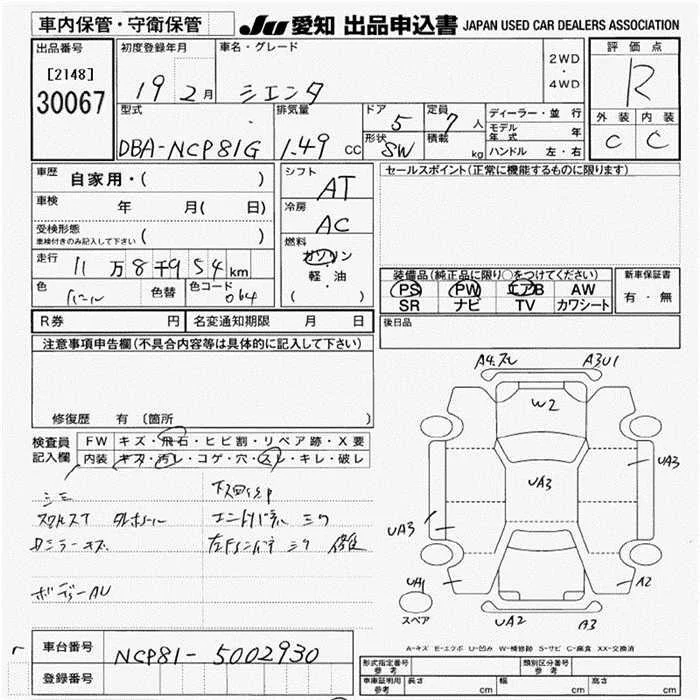 車内保管・守衛保管 JU 愛知 出品申込書 JAPAN USED CAR DEALERS ASSOCIATION
出品番号 初度登録年月 車名・グレード 評価点
[2148] 19年 2月 シエンタ 2WD・4WD R
30067
型式 排気量 ドア 5 定員 7人 ディーラー・並行 外装 内装
DBA-NCP81G 1.49 CC 形状 SW 積載 kg モデル年式 年 C C
ハンドル 左・右
車歴 自家用・( ) シフト AT セールスポイント(正常に機能するものに限ります)
車検 年 月( 日) 冷房 AC
受検形態 ( )
車検付きのみ記入して下さい
燃料 ガソリン・軽・油 ( )
走行 11万8千954km
色 色替 色コード 064
装備品(純正品に限り○をつけてください) 新車保証書
PS PW エアB AW 有・無
SR ナビ TV カワシート
R券 円 名変通知期限 月 日 後日品
注意事項申告欄(不具合内容等は具体的に記入して下さい)
修復歴 有 〔箇所
A3U1
W2
検査員 FW キズ・飛石・ヒビ割・リペア跡・X要
記入欄 内装 キズ・汚レ・コゲ・穴・スレ・キレ・破レ
UA3
UA3
UA3
シミ
ボディーAU
UA1
A2
スペア UA2 A3
A-キズ E-エクボ U-凹み W-補修跡 S-サビ C-腐食 XX-交換済
車台番号 NCP81-5002930
登録番号
形式指定番号 参考 類別区分番号 参考
車庫証明用 参考 長さ cm 幅 cm 高さ cm